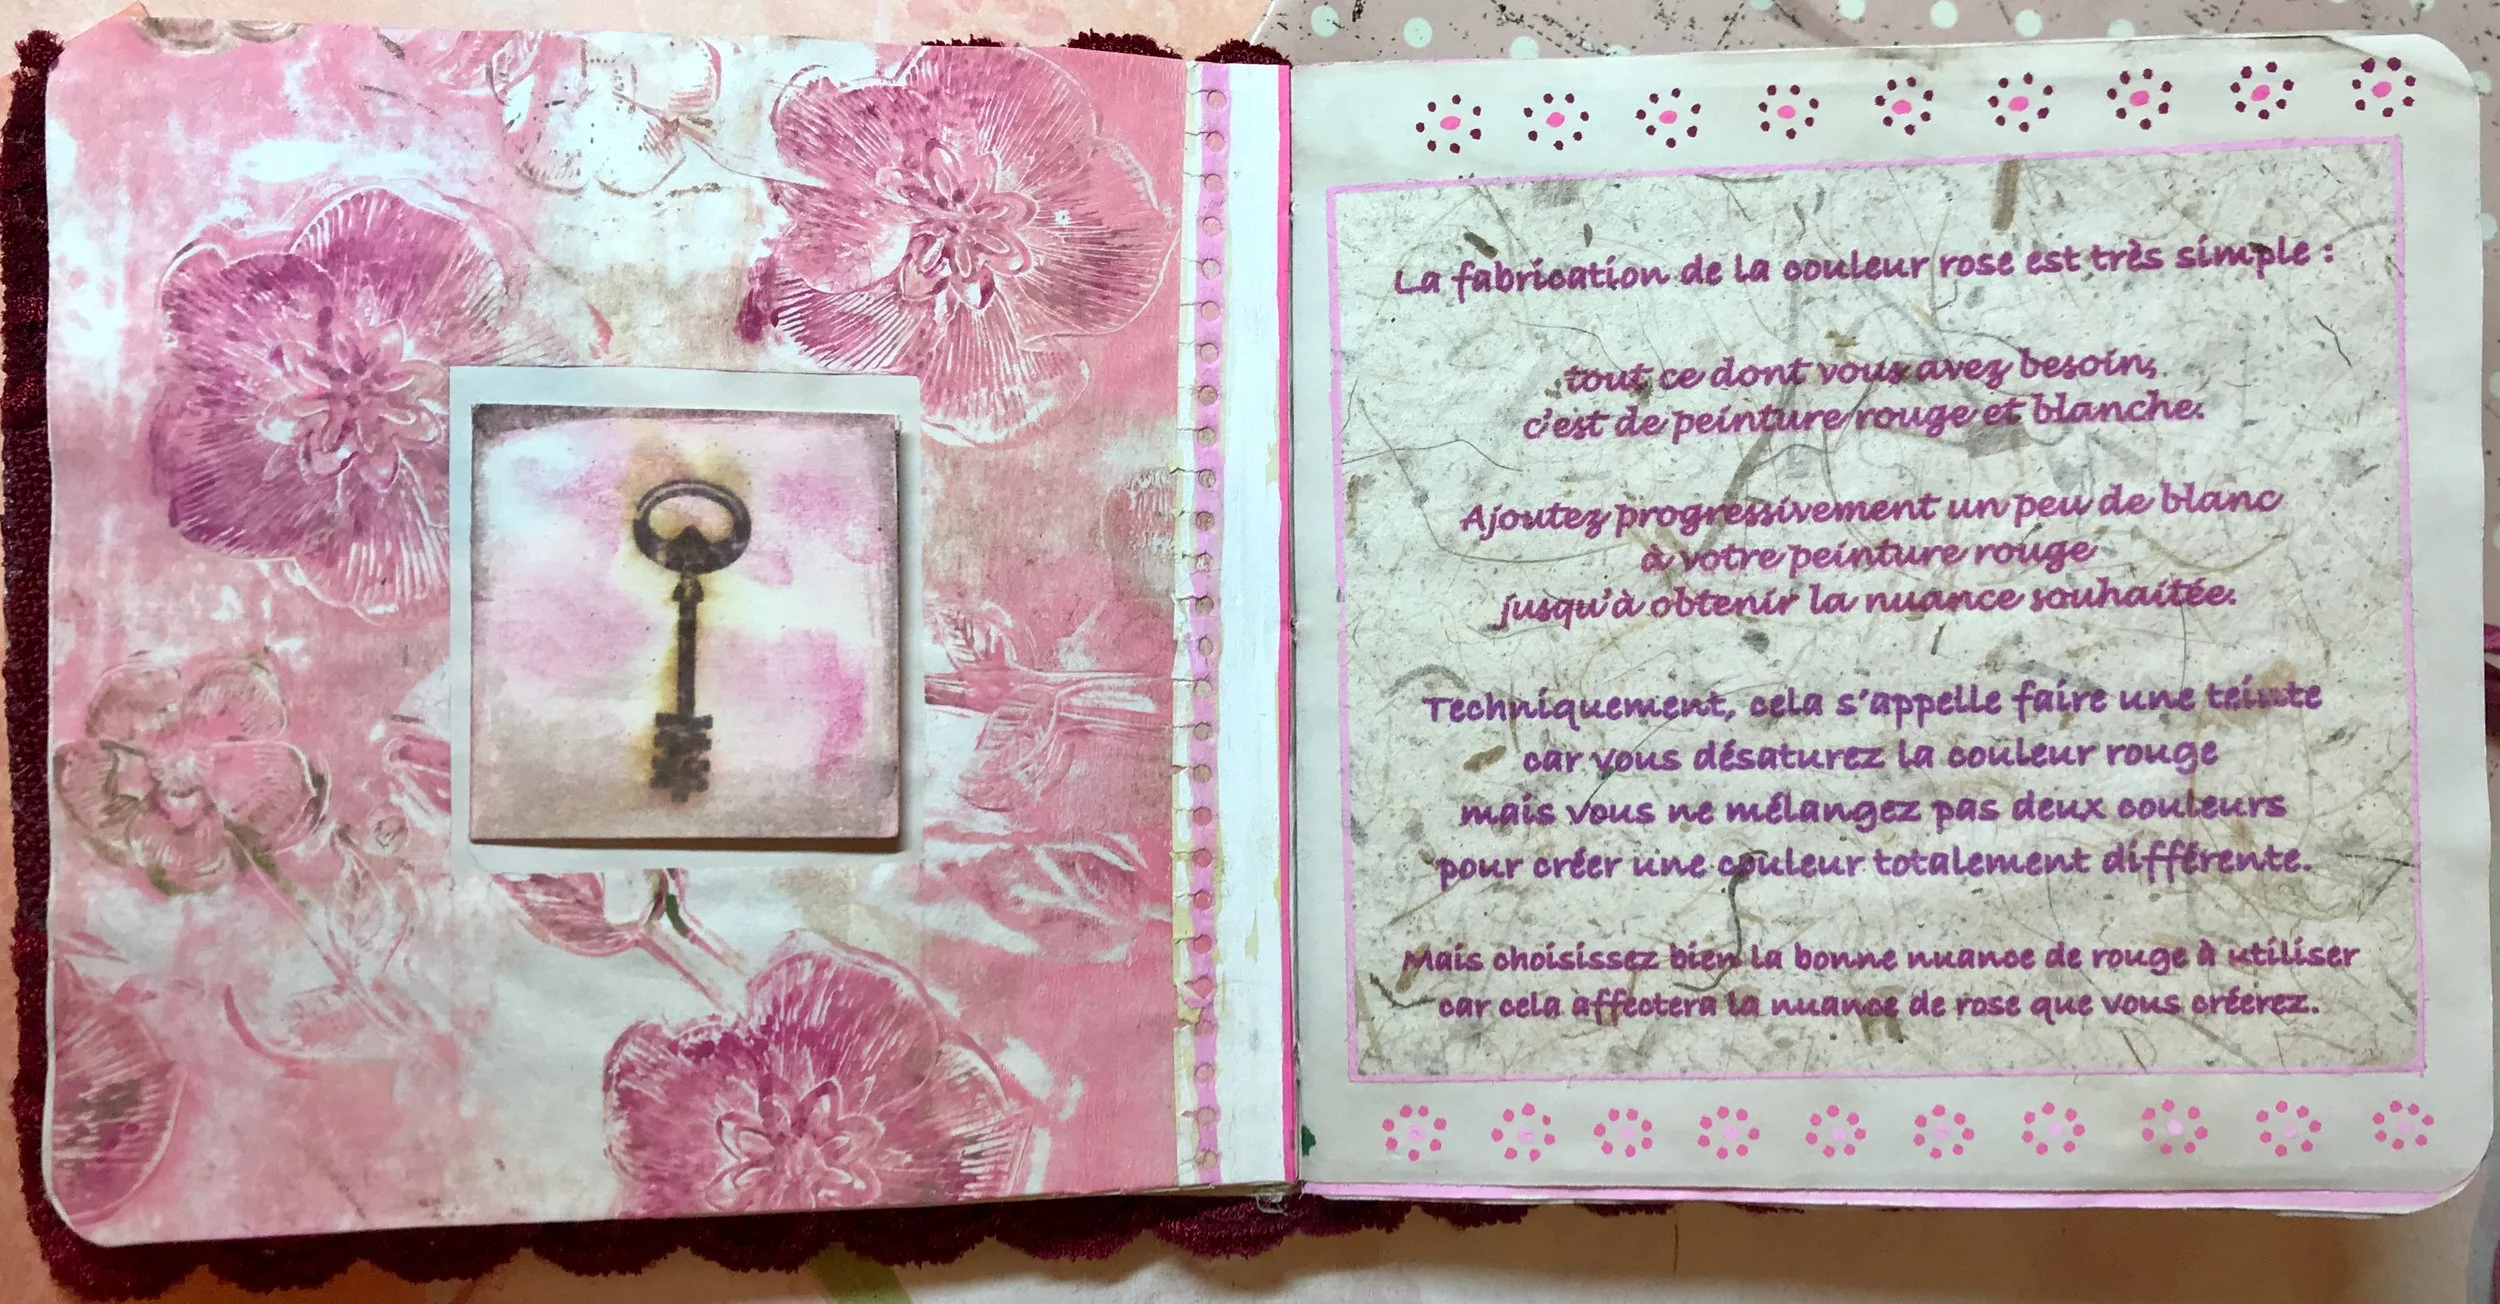 La fabrication de la couleur rose est très simple :
tout ce dont vous avez besoin,
c'est de peinture rouge et blanche.
Ajoutez progressivement un peu de blanc
à votre peinture rouge
jusqu'à obtenir la nuance souhaitée.
Techniquement, cela s'appelle faire une teinte
car vous désaturez la couleur rouge
mais vous ne mélangez pas deux couleurs
pour créer une couleur totalement différente.
Mais choisissez bien la bonne nuance de rouge à utiliser
car cela affectera la nuance de rose que vous créerez.